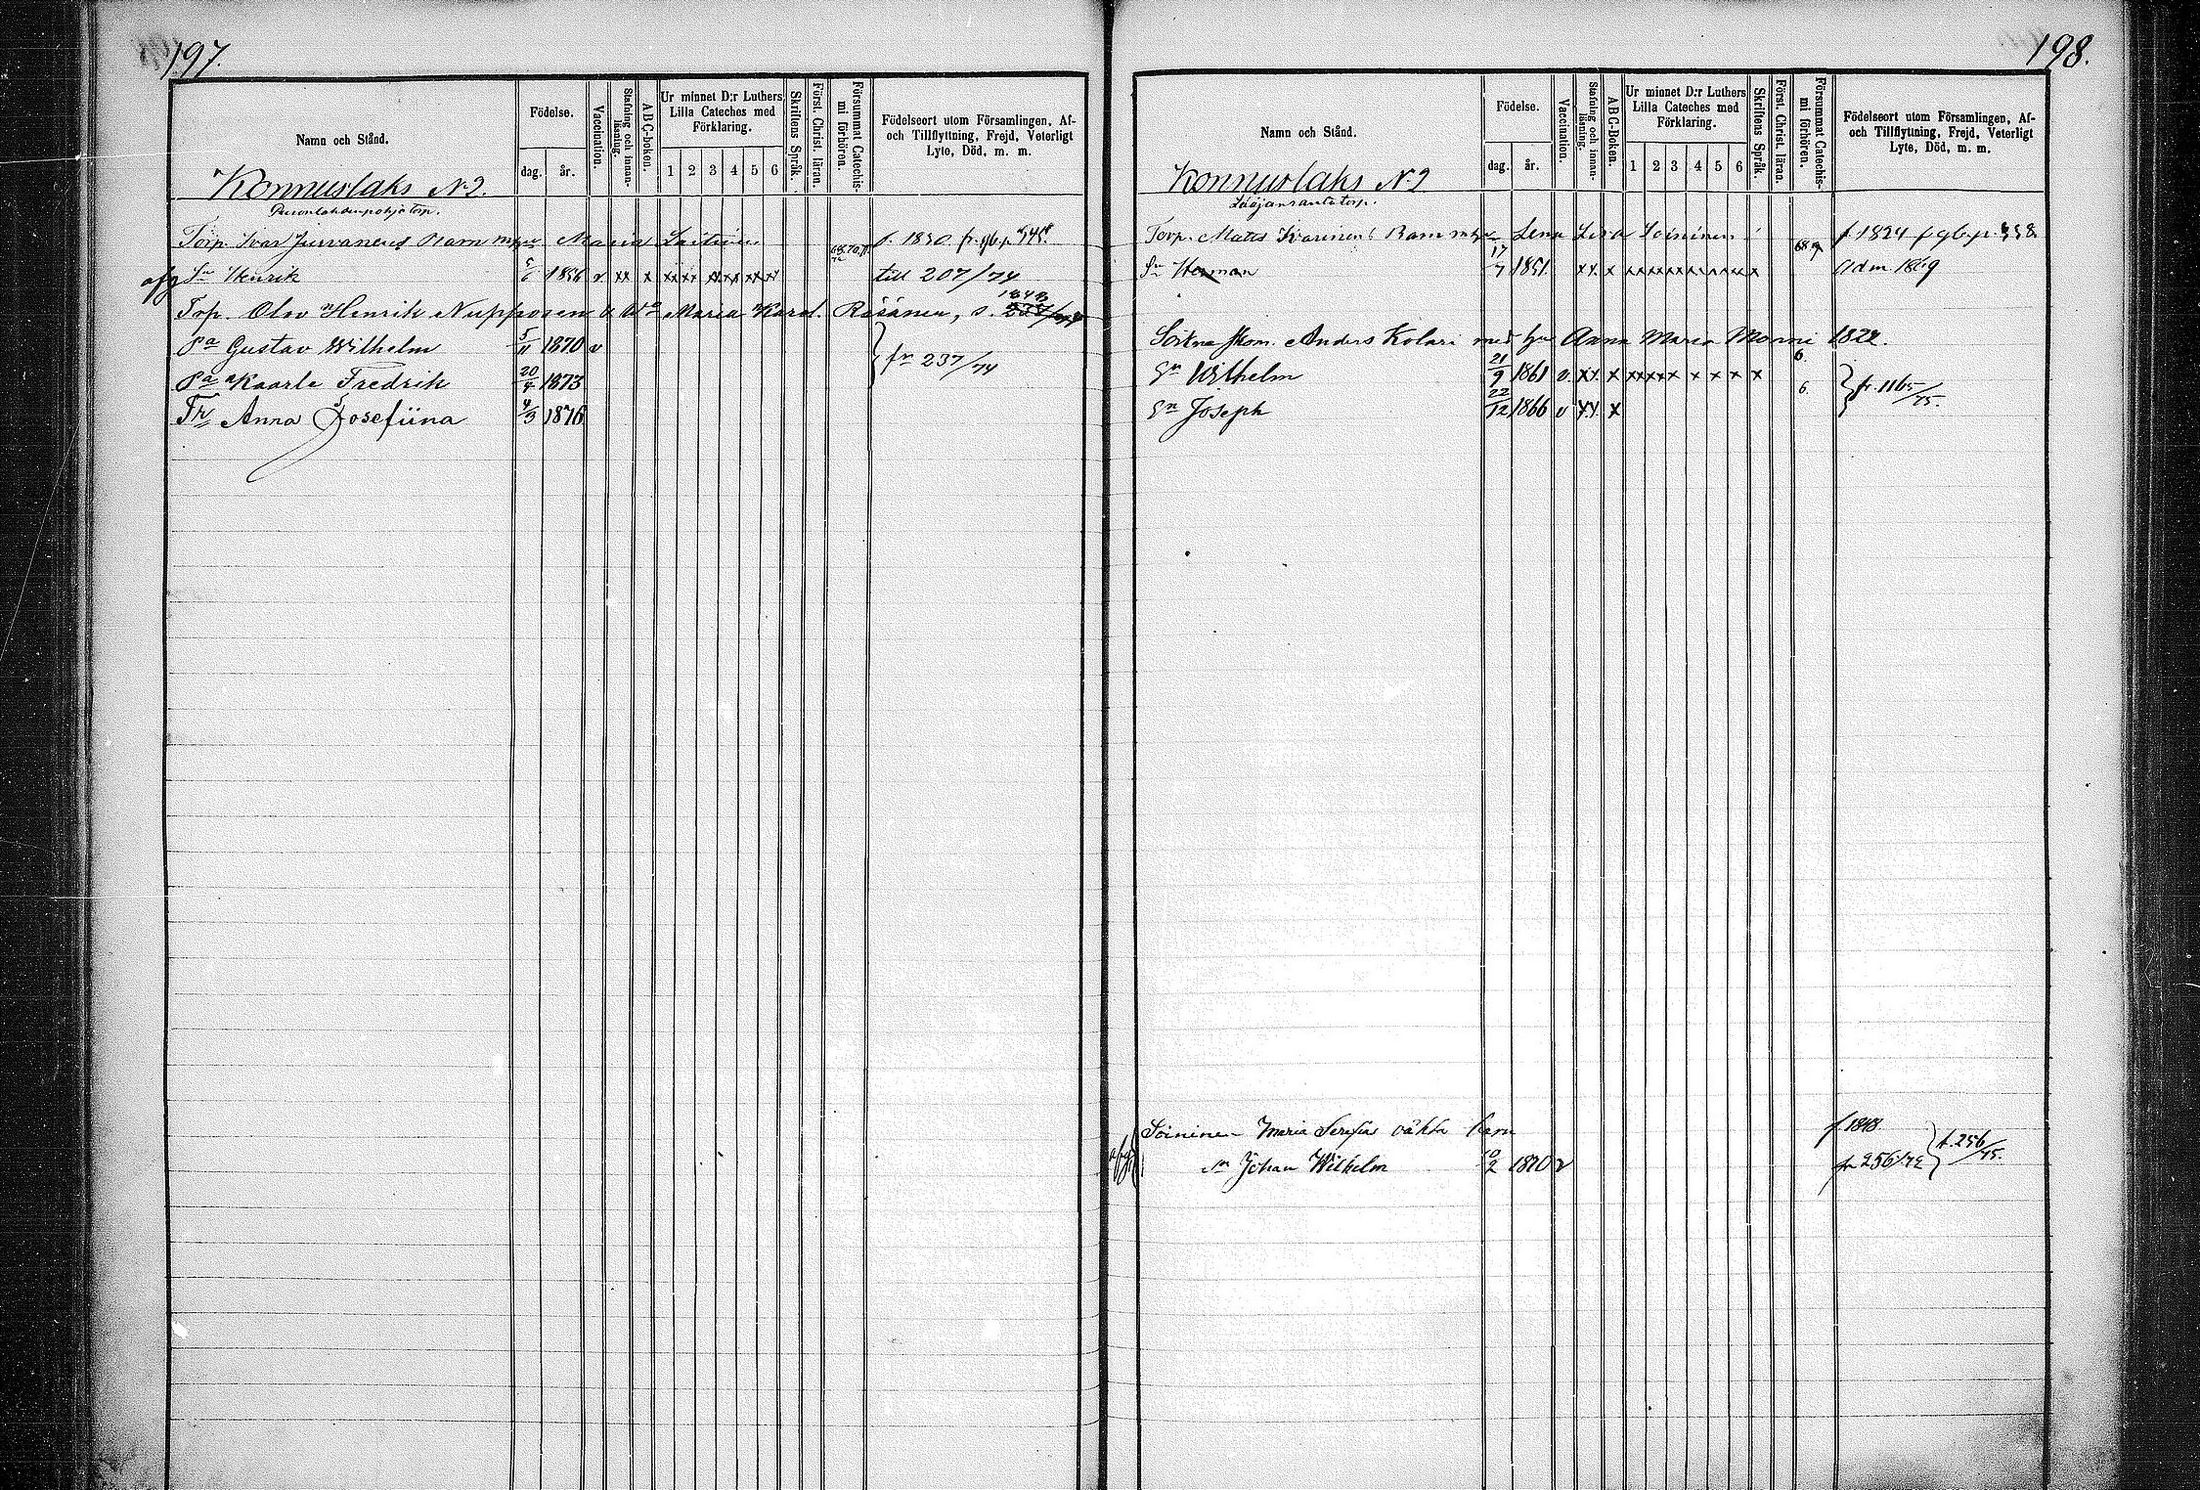 197.
Namn och Stånd.
Födelse.
dag.
år.
Vaccination.
Stafning och innan-läsning.
A B C-boken.
Ur minnet D:r Luthers
Lilla Cateches med
Förklaring.
1 2 3 4 5 6
Skriftens Språk.
Först. Christ. läran.
Försummat Catechis-
mi förhören.
Födelseort utom Församlingen, Af-
och Tillflyttning, Frejd, Veterligt
Lyte, Död, m. m.
Konnuslaks N:2.
Torp. Ivar Maria Laitinen f. 1830
afg Sn Henrik 1856 v xx x xx xx xx xx xx till 207/74
Torp. Olov Henrik Nupponen Maria Karol. Räsänen, 1843
Pa Gustav Wilhelm 5/11 1870 v
fr 237/74
Pa Kaarle Fredrik 20/4 1873
Tr Anna Josefiina 4/3 1876
198.
Namn och Stånd.
Födelse.
dag.
år.
Vaccination.
Stafning och innan-läsning.
A B C-Boken.
Ur minnet D:r Luthers
Lilla Cateches med
Förklaring.
1 2 3 4 5 6
Skriftens Språk.
Först. Christ. läran.
Försummat Catechis-
mi förhören.
Födelseort utom Församlingen, Af-
och Tillflyttning, Frejd, Veterligt
Lyte, Död, m. m.
Konnuslaks N:2
Torp. Mats Lena Lisa Soininen f. 1824
Sn Herman 17/7 1851 xx x Adm 1869
Anders Kolari med hu Anna Maria Monni 1822.
Sn Wilhelm 21/9 1861 v. xx x
6.
Sn Joseph 22/12 1866 v xx x
6.
fr. 1165/75.
Soininen Maria Serefia oäkta barn f 1848
afg sn Johan Wilhelm 10/2 1870 v fr 256/72
t. 256/75.